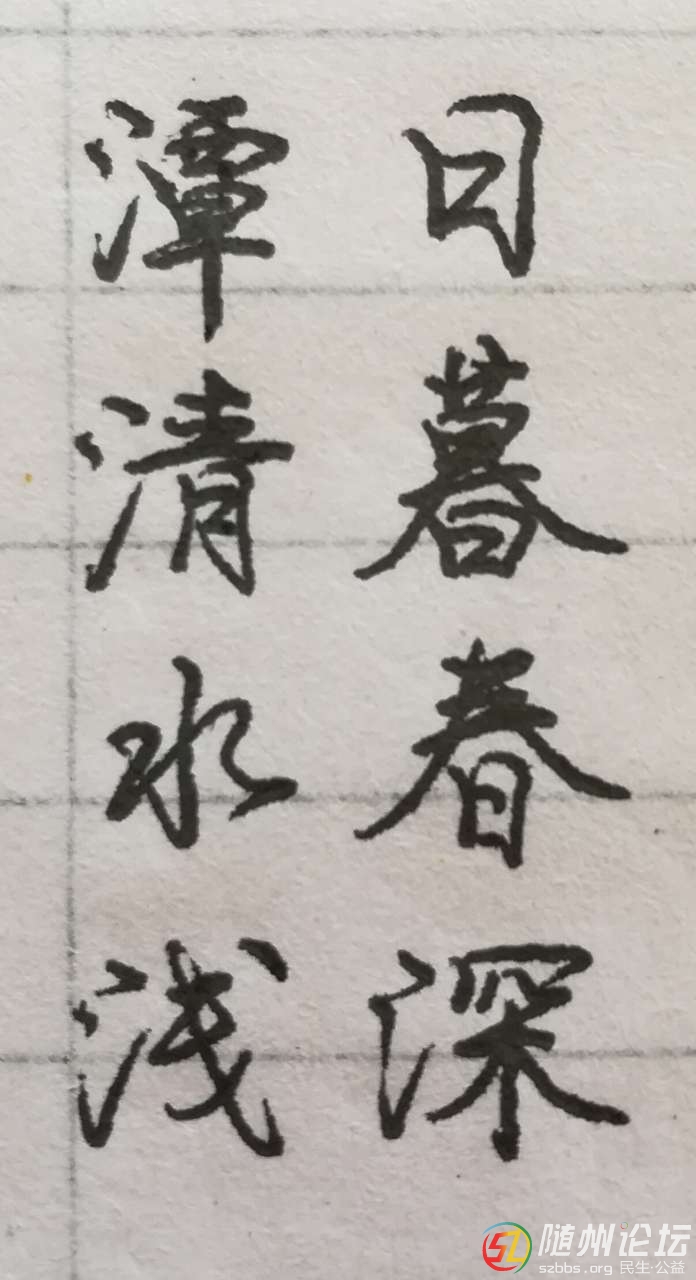 日暮春深
潭清水浅
随州论坛
szbbs.org 民生·公益